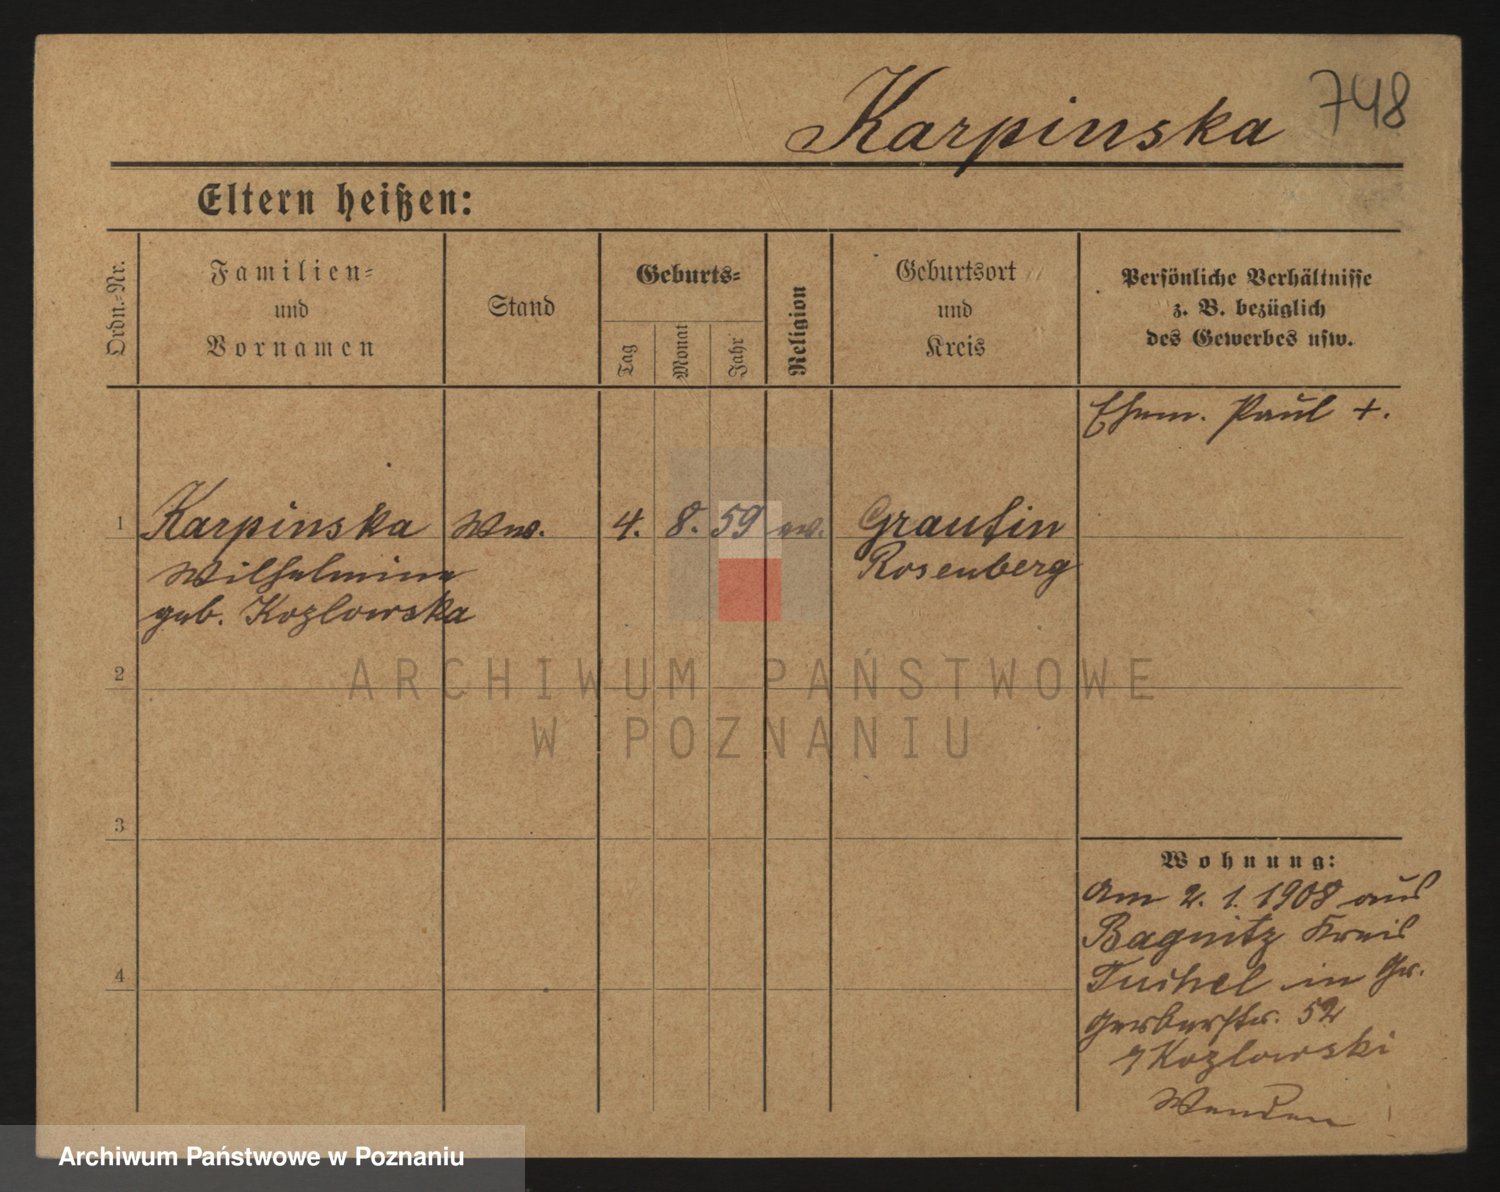 Karpinska 748
Eltern heißen:
Ordn.-Nr.
Familien-
und
Vornamen
Stand
Geburts-
Tag
Monat
Jahr
Religion
Geburtsort
und
Kreis
Persönliche Verhältnisse
z. B. bezüglich
des Gewerbes usw.
Ehem. Paul +.
1 Karpinska Ww. 4. 8. 59 ev. Grautin
Wilhelmine Rosenberg
geb. Kozlowska
2
3
4
Wohnung:
Am 2. 1. 1908 aus
Bagnitz Kreis
Tuchel in Gr.
Gerberstr. 52
Kozlowski
ARCHIWUM PAŃSTWOWE
W POZNANIU
Archiwum Państwowe w Poznaniu